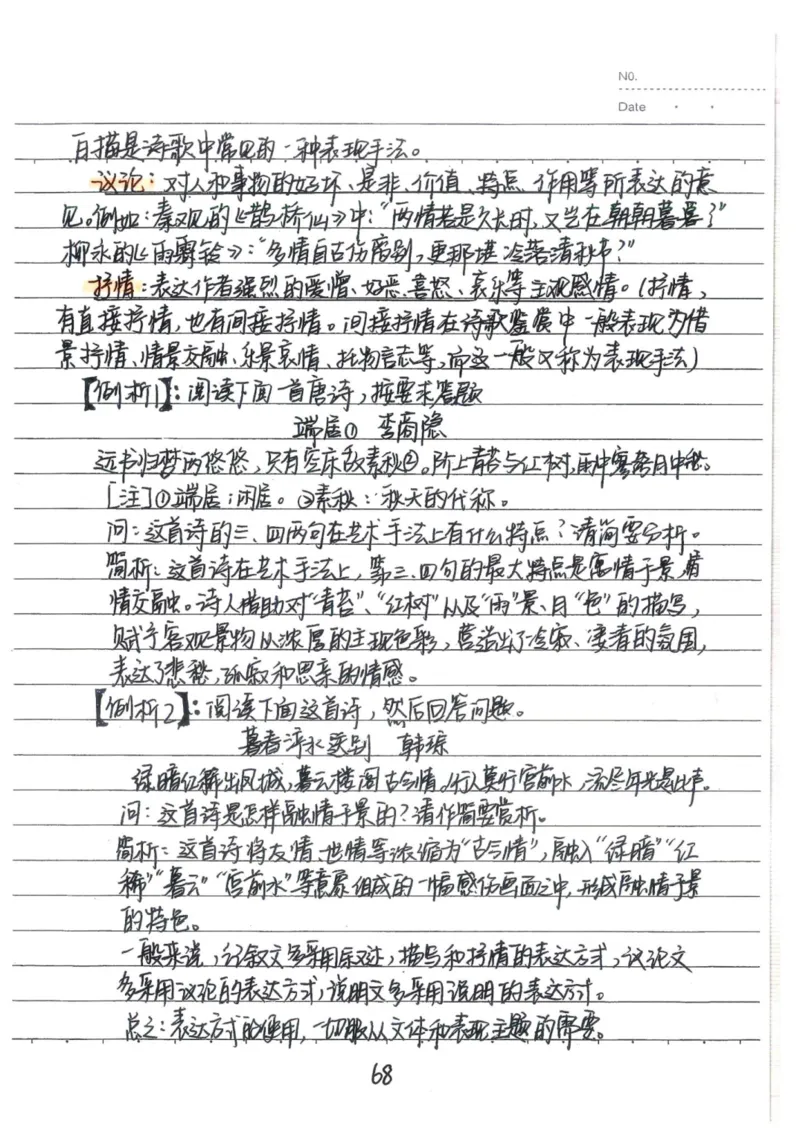 No.
Date
白描是诗歌中常见的一种表现手法。
议论：对人和事物的好坏、是非、价值、特点、作用等所表达的意
见。例如：秦观的《鹊桥仙》中：“两情若是久长时，又岂在朝朝暮暮？”
柳永的《雨霖铃》：“多情自古伤离别，更那堪冷落清秋节？”
抒情：表达作者强烈的爱憎、好恶、喜怒、哀乐等主观感情。（抒情，
有直接抒情，也有间接抒情。间接抒情在诗歌鉴赏中一般表现为借
景抒情、情景交融、乐景哀情、托物言志等，而这一般又称为表现手法）
【例析1】：阅读下面一首唐诗，按要求答题
端居① 李商隐
远书归梦两悠悠，只有空床敌素秋②。阶上青苔与红树，雨中寥落月中愁。
[注]①端居：闲居。②素秋：秋天的代称。
问：这首诗的三、四两句在艺术手法上有什么特点？请简要分析。
简析：这首诗在艺术手法上，第三、四句的最大特点是寓情于景，情
情交融。诗人借助对“青苔”、“红树”以及“雨”景、月“色”的描写，
赋予客观景物以浓厚的主观色彩，营造出了冷寂、凄清的氛围，
表达了悲愁、孤寂和思亲的情感。
【例析2】：阅读下面这首诗，然后回答问题。
暮春浐水送别 韩琮
绿暗红稀出凤城，暮云楼阁古今情。行人莫听宫前水，流尽年光是此声。
问：这首诗是怎样融情于景的？请作简要赏析。
简析：这首诗将友情、世情等浓缩为“古今情”，融入“绿暗”“红
稀”“暮云”“宫前水”等意象组成的一幅感伤画面之中，形成融情于景
的特色。
一般来说，记叙文多采用叙述，描写和抒情的表达方式，议论文
多采用议论的表达方式，说明文多采用说明的表达方式。
总之：表达方式的使用，一切服从文体和表现主题的需要。
68